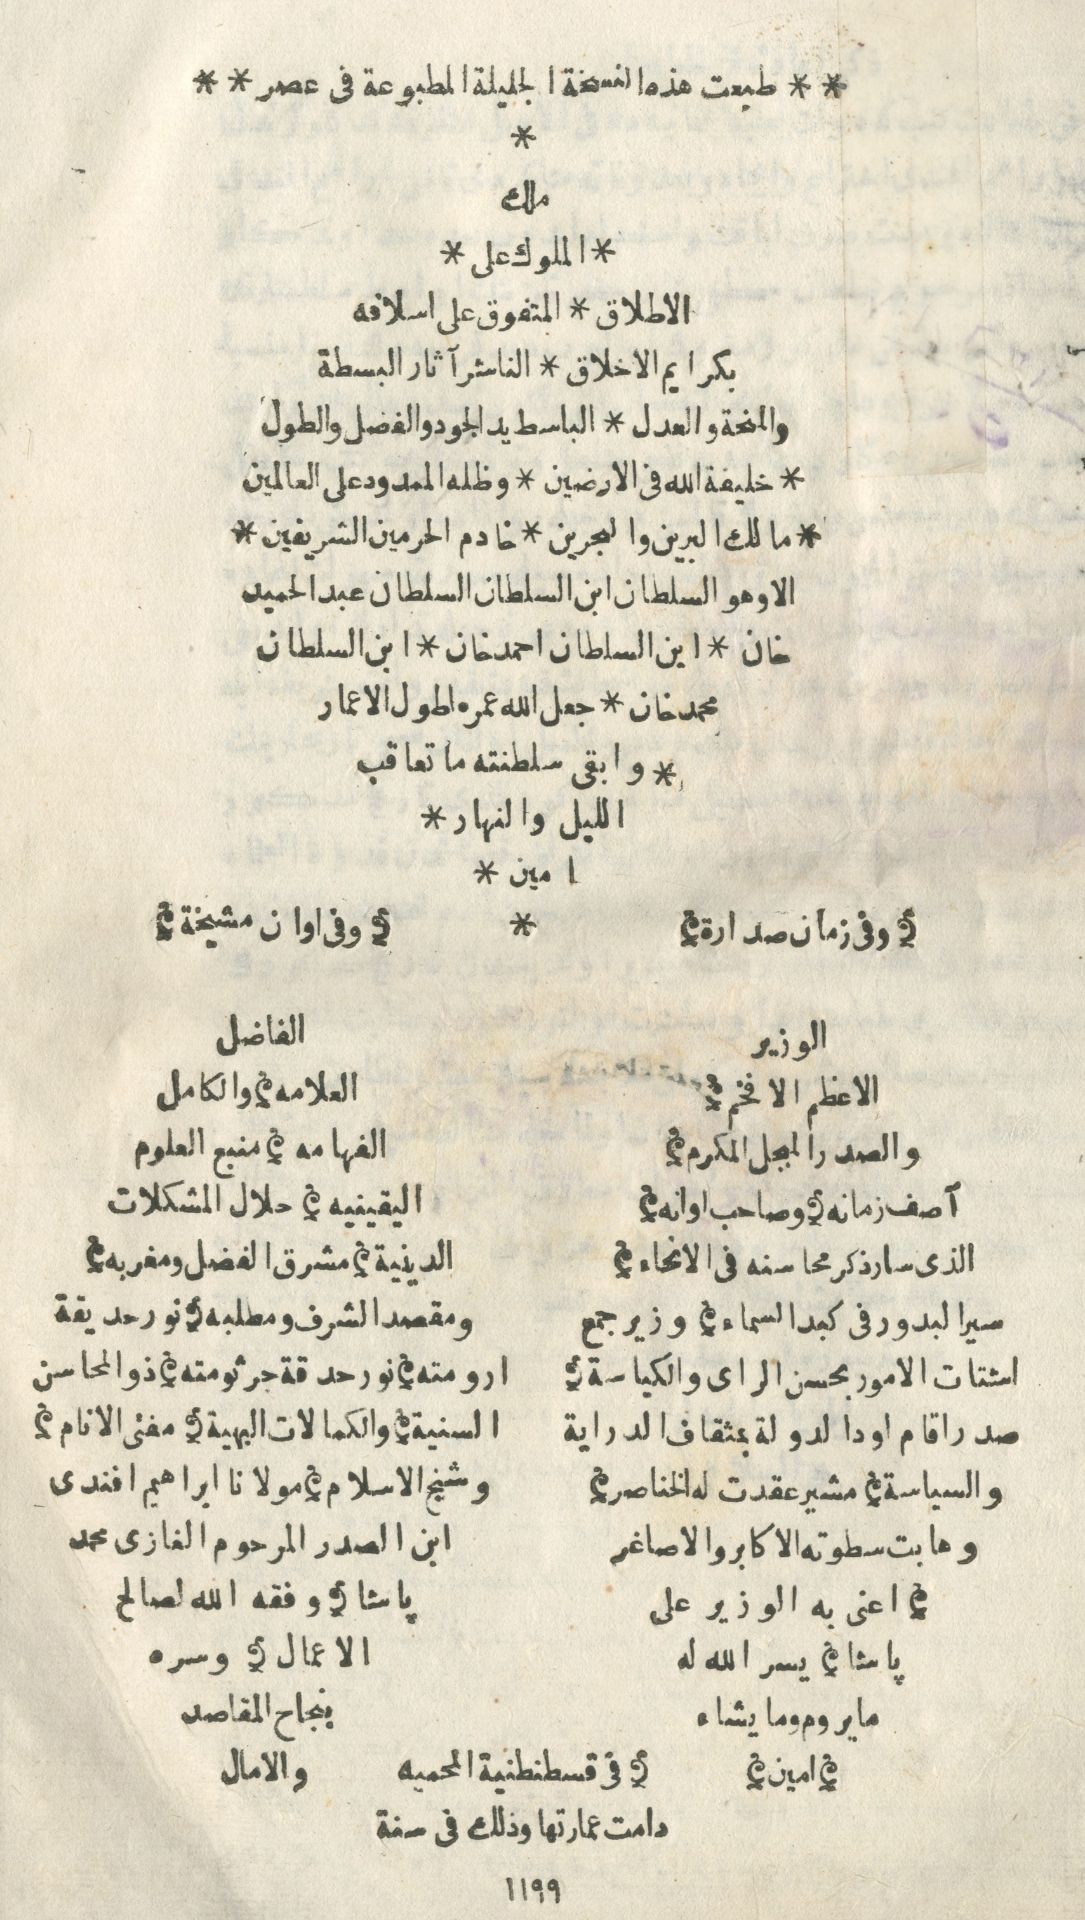 ** طبعت هذه النسخة الجليلة المطبوعة فى عصر **
*
ملك
* الملوك على *
الاطلاق * المتفوق على اسلافه
بكرايم الاخلاق * الناشر آثار البسطة
والمنحة والعدل * الباسط يد الجود والفضل والطول
* خليفة الله فى الارضين * وظله الممدود على العالمين
* مالك البرين والبحرين * خادم الحرمين الشريفين *
الا وهو السلطان ابن السلطان السلطان عبد الحميد
خان * ابن السلطان احمد خان * ابن السلطان
محمد خان * جعل الله عمره اطول الاعمار
* وابقى سلطنته ما تعاقب
الليل والنهار *
امين *
وفى زمان صدارة * وفى اوان مشيخة
الوزير
الاعظم الافخم
والصدر المبجل المكرم
آصف زمانه وصاحب اوانه
الذى سار ذكر محاسنه فى الانحاء
سير البدور فى كبد السماء وزير جمع
اشتات الامور بحسن الراى والكياسة
صدر اقام اود الدولة بثقاف الدراية
والسياسة مشير عقدت له الخناصر
وهابت سطوته الاكابر والاصاغر
اعنى به الوزير على
پاشا يسر الله له
ما يروم وما يشاء
امين
الفاضل
العلامه والكامل
الفهامه منبع العلوم
اليقينيه حلال المشكلات
الدينية مشرق الفضل ومغربه
ومقصد الشرف ومطلبه نور حديقة
ارومته نور حدقة جرثومته ذو المحاسن
السنية والكمالات البهية مفتى الانام
وشيخ الاسلام مولانا ابراهيم افندى
ابن الصدر المرحوم الغازى محمد
پاشا وفقه الله لصالح
الاعمال وسره
بنجاح المقاصد
والامال
فى قسطنطنية المحميه
دامت عمارتها وذلك فى سنة
١١٩٩